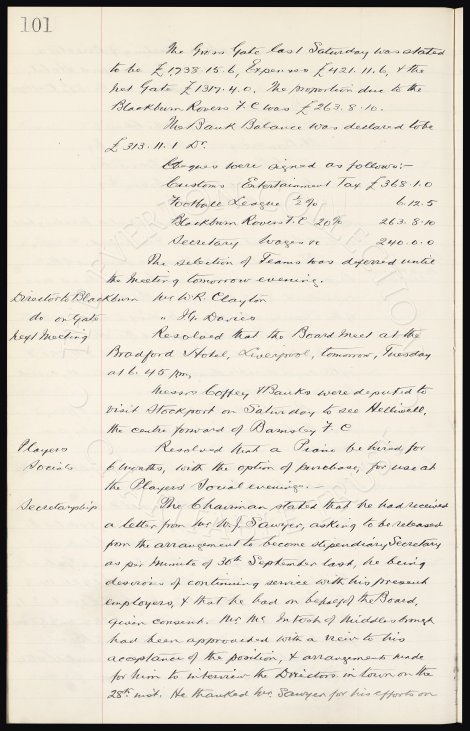 101
The Gross Gate last Saturday was stated
to be £1738.15.6, Expenses £421.11.6, & the
net Gate £1317.4.0. The proportion due to the
Blackburn Rovers F.C was £263.8.10.
The Bank Balance was declared to be
£313.11.1 Dr.
Cheques were signed as follows:-
Customs Entertainment Tax £368.1.0
Football League ½% 6.12.5
Blackburn Rovers F.C. 20% 263.8.10
Secretary Wages 240.0.0
The selection of Teams was deferred until
the Meeting tomorrow evening.
Director to Blackburn Mr W.R. Clayton
do on Gate " Davies
Next Meeting Resolved that the Board meet at the
Bradford Hotel, Liverpool, tomorrow, Tuesday
at 6.45 pm,
Messrs Coffey & Banks were deputed to
visit Stockport on Saturday to see Helliwell,
the centre forward of Barnsley F.C
Players Resolved that a Piano be hired for
Socials 6 months, with the option of purchase, for use at
the Players Social evenings. —
Secretaryship The Chairman stated that he had received
a letter from Mr W.J. Sawyer, asking to be released
from the arrangement to become stipendiary Secretary
as per Minute of 30th September last, he being
desirous of continuing service with his present
employers, & that he had on behalf of the Board,
given consent. Mr Mc Intosh of Middlesbrough
had been approached with a view to his
acceptance of the position, & arrangements made
for him to interview the Directors in town on the
28th inst. He thanked Mr Sawyer for his efforts on